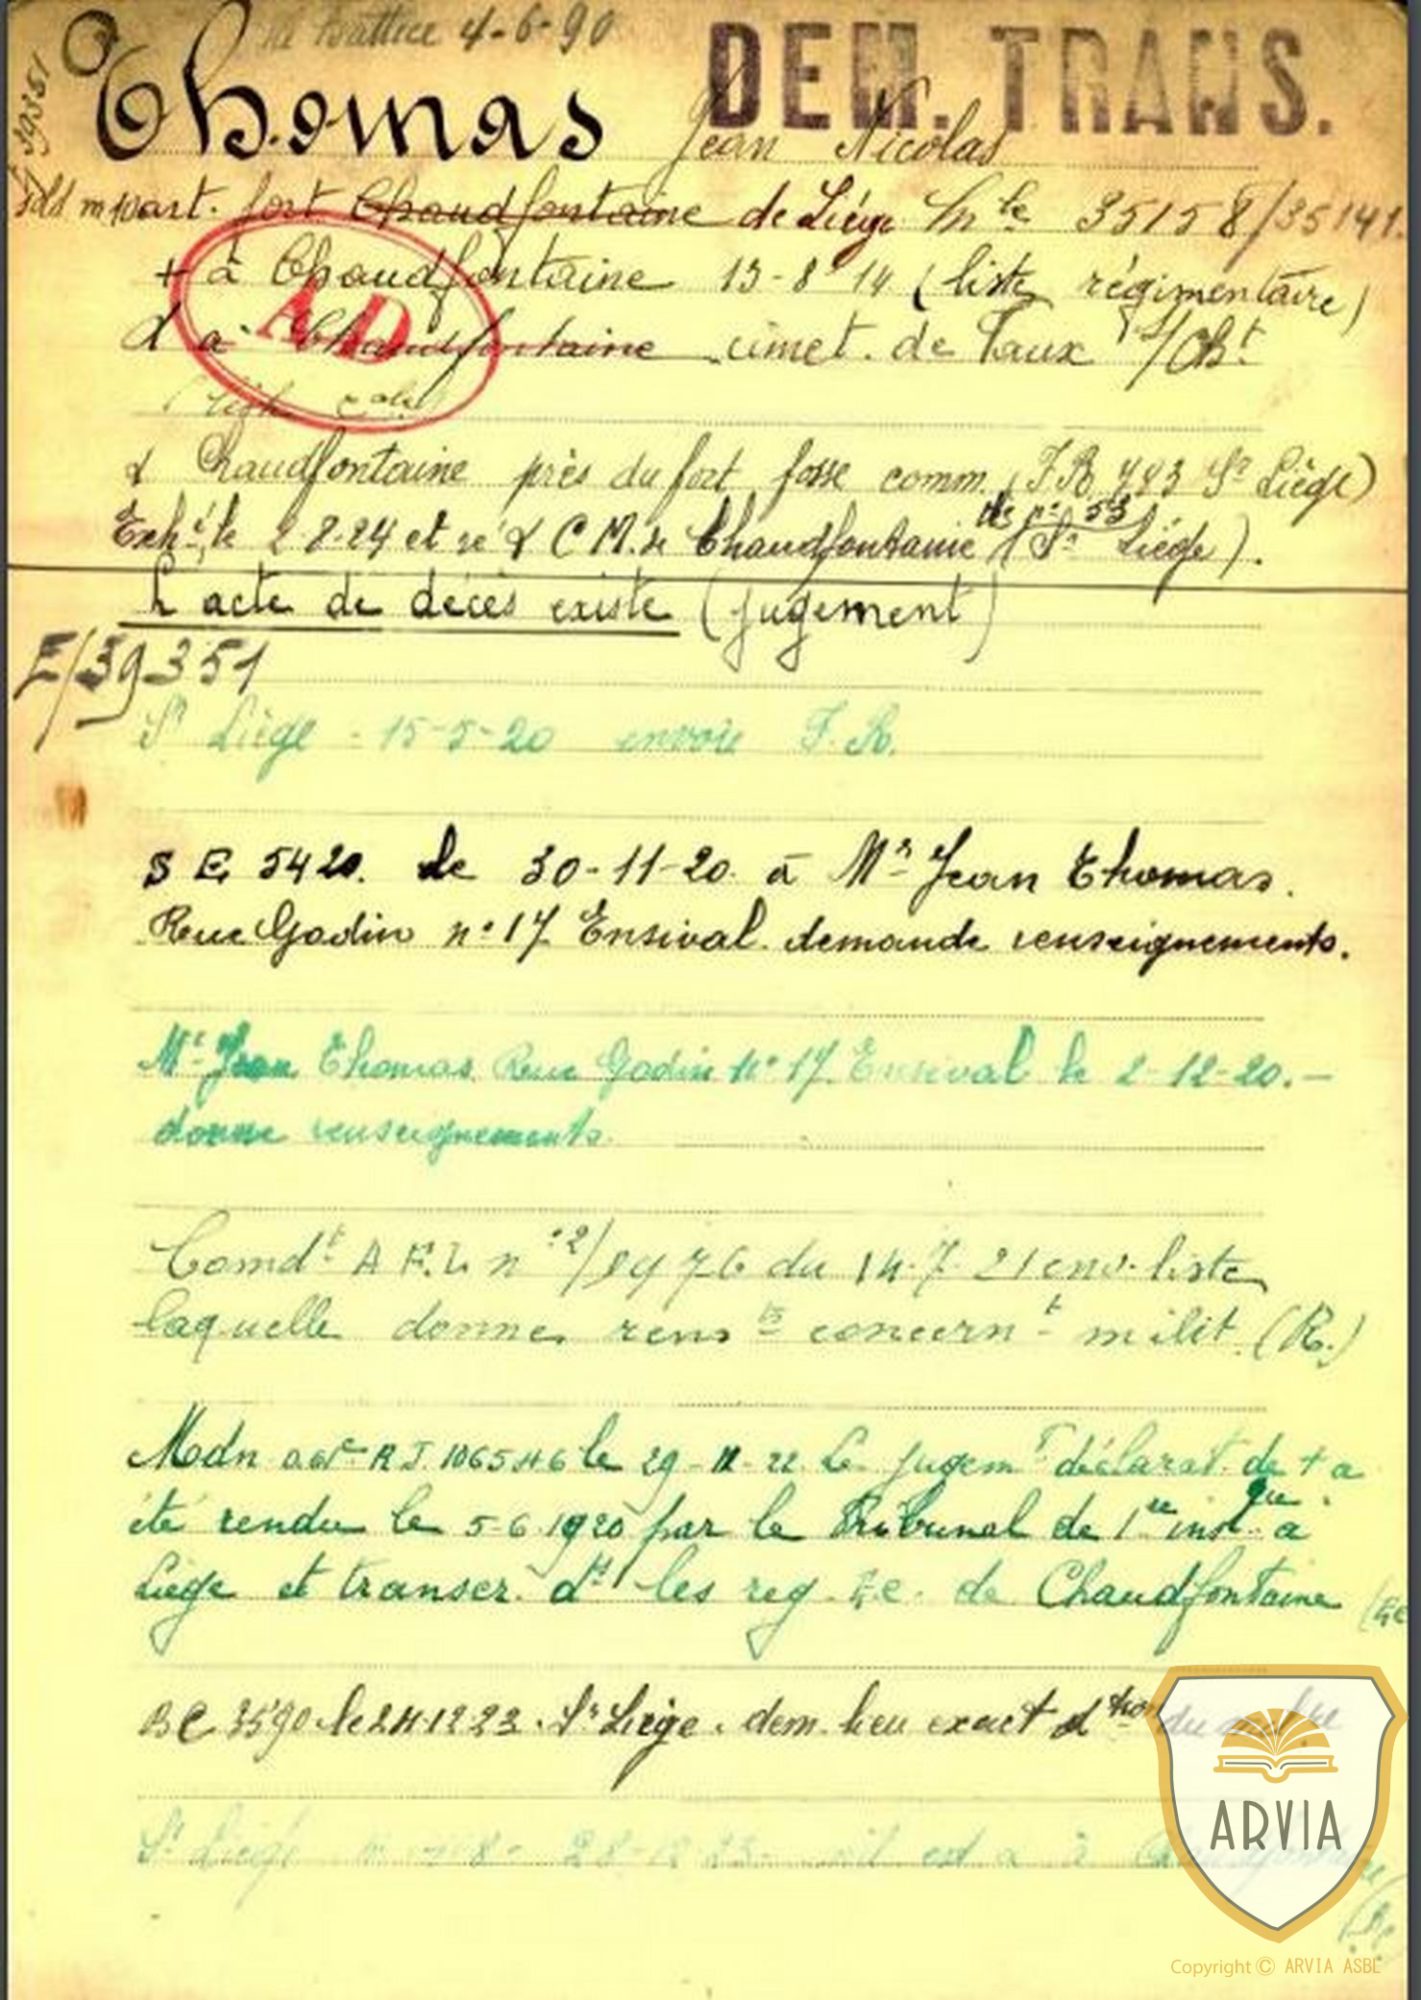 né Battice 4-6-90
39351
DEM. TRANS.
Thomas Jean Nicolas
Sdt mil. art. fort Chaudfontaine de Liège Mle 35158/35141.
+ à Chaudfontaine 13-8-14 (liste régimentaire)
AD
à Chaudfontaine cimet. de Vaux s/Cht
Chaudfontaine près du fort fosse comm. (F.R. 793 Sr Liège)
Exh. le 2-8-24 et ré C M. de Chaudfontaine (Sr Liège).
tbe no 53
L'acte de décès existe (jugement)
E/39351
Sr Liège - 15-5-20 envoie F. R.
S E 5420. le 30-11-20 à Mr Jean Thomas.
Rue Godin no 17 Ensival demande renseignements.
Mr Jean Thomas Rue Godin no 17 Ensival le 2-12-20. —
donne renseignements.
Comdt A.F.L n°2/8976 du 14-7-21 env. liste
laquelle donne rensts concernt milit. (R.)
Mdn R J 106546 le 29-11-22 Le jugemt déclarat. de + a
été rendu le 5-6-1920 par le Tribunal de 1re inst. à
Liège et transcr. dt les reg. E.C. de Chaudfontaine (E.C
B C 3590 le 24-12-23. Sr Liège. dem. lieu exact du
Sr Liège 28-12-23 est à
ARVIA
Copyright © ARVIA ASBL